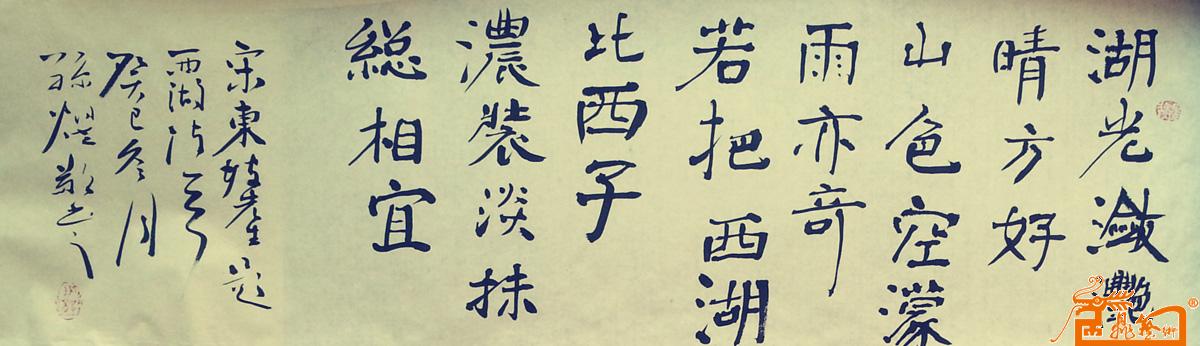 湖光瀲灧
晴方好
山色空濛
雨亦奇
若把西湖
比西子
濃裝淡抹
総相宜
宋東坡居士題
西湖詩一首
癸巳冬月
孫燿敬書